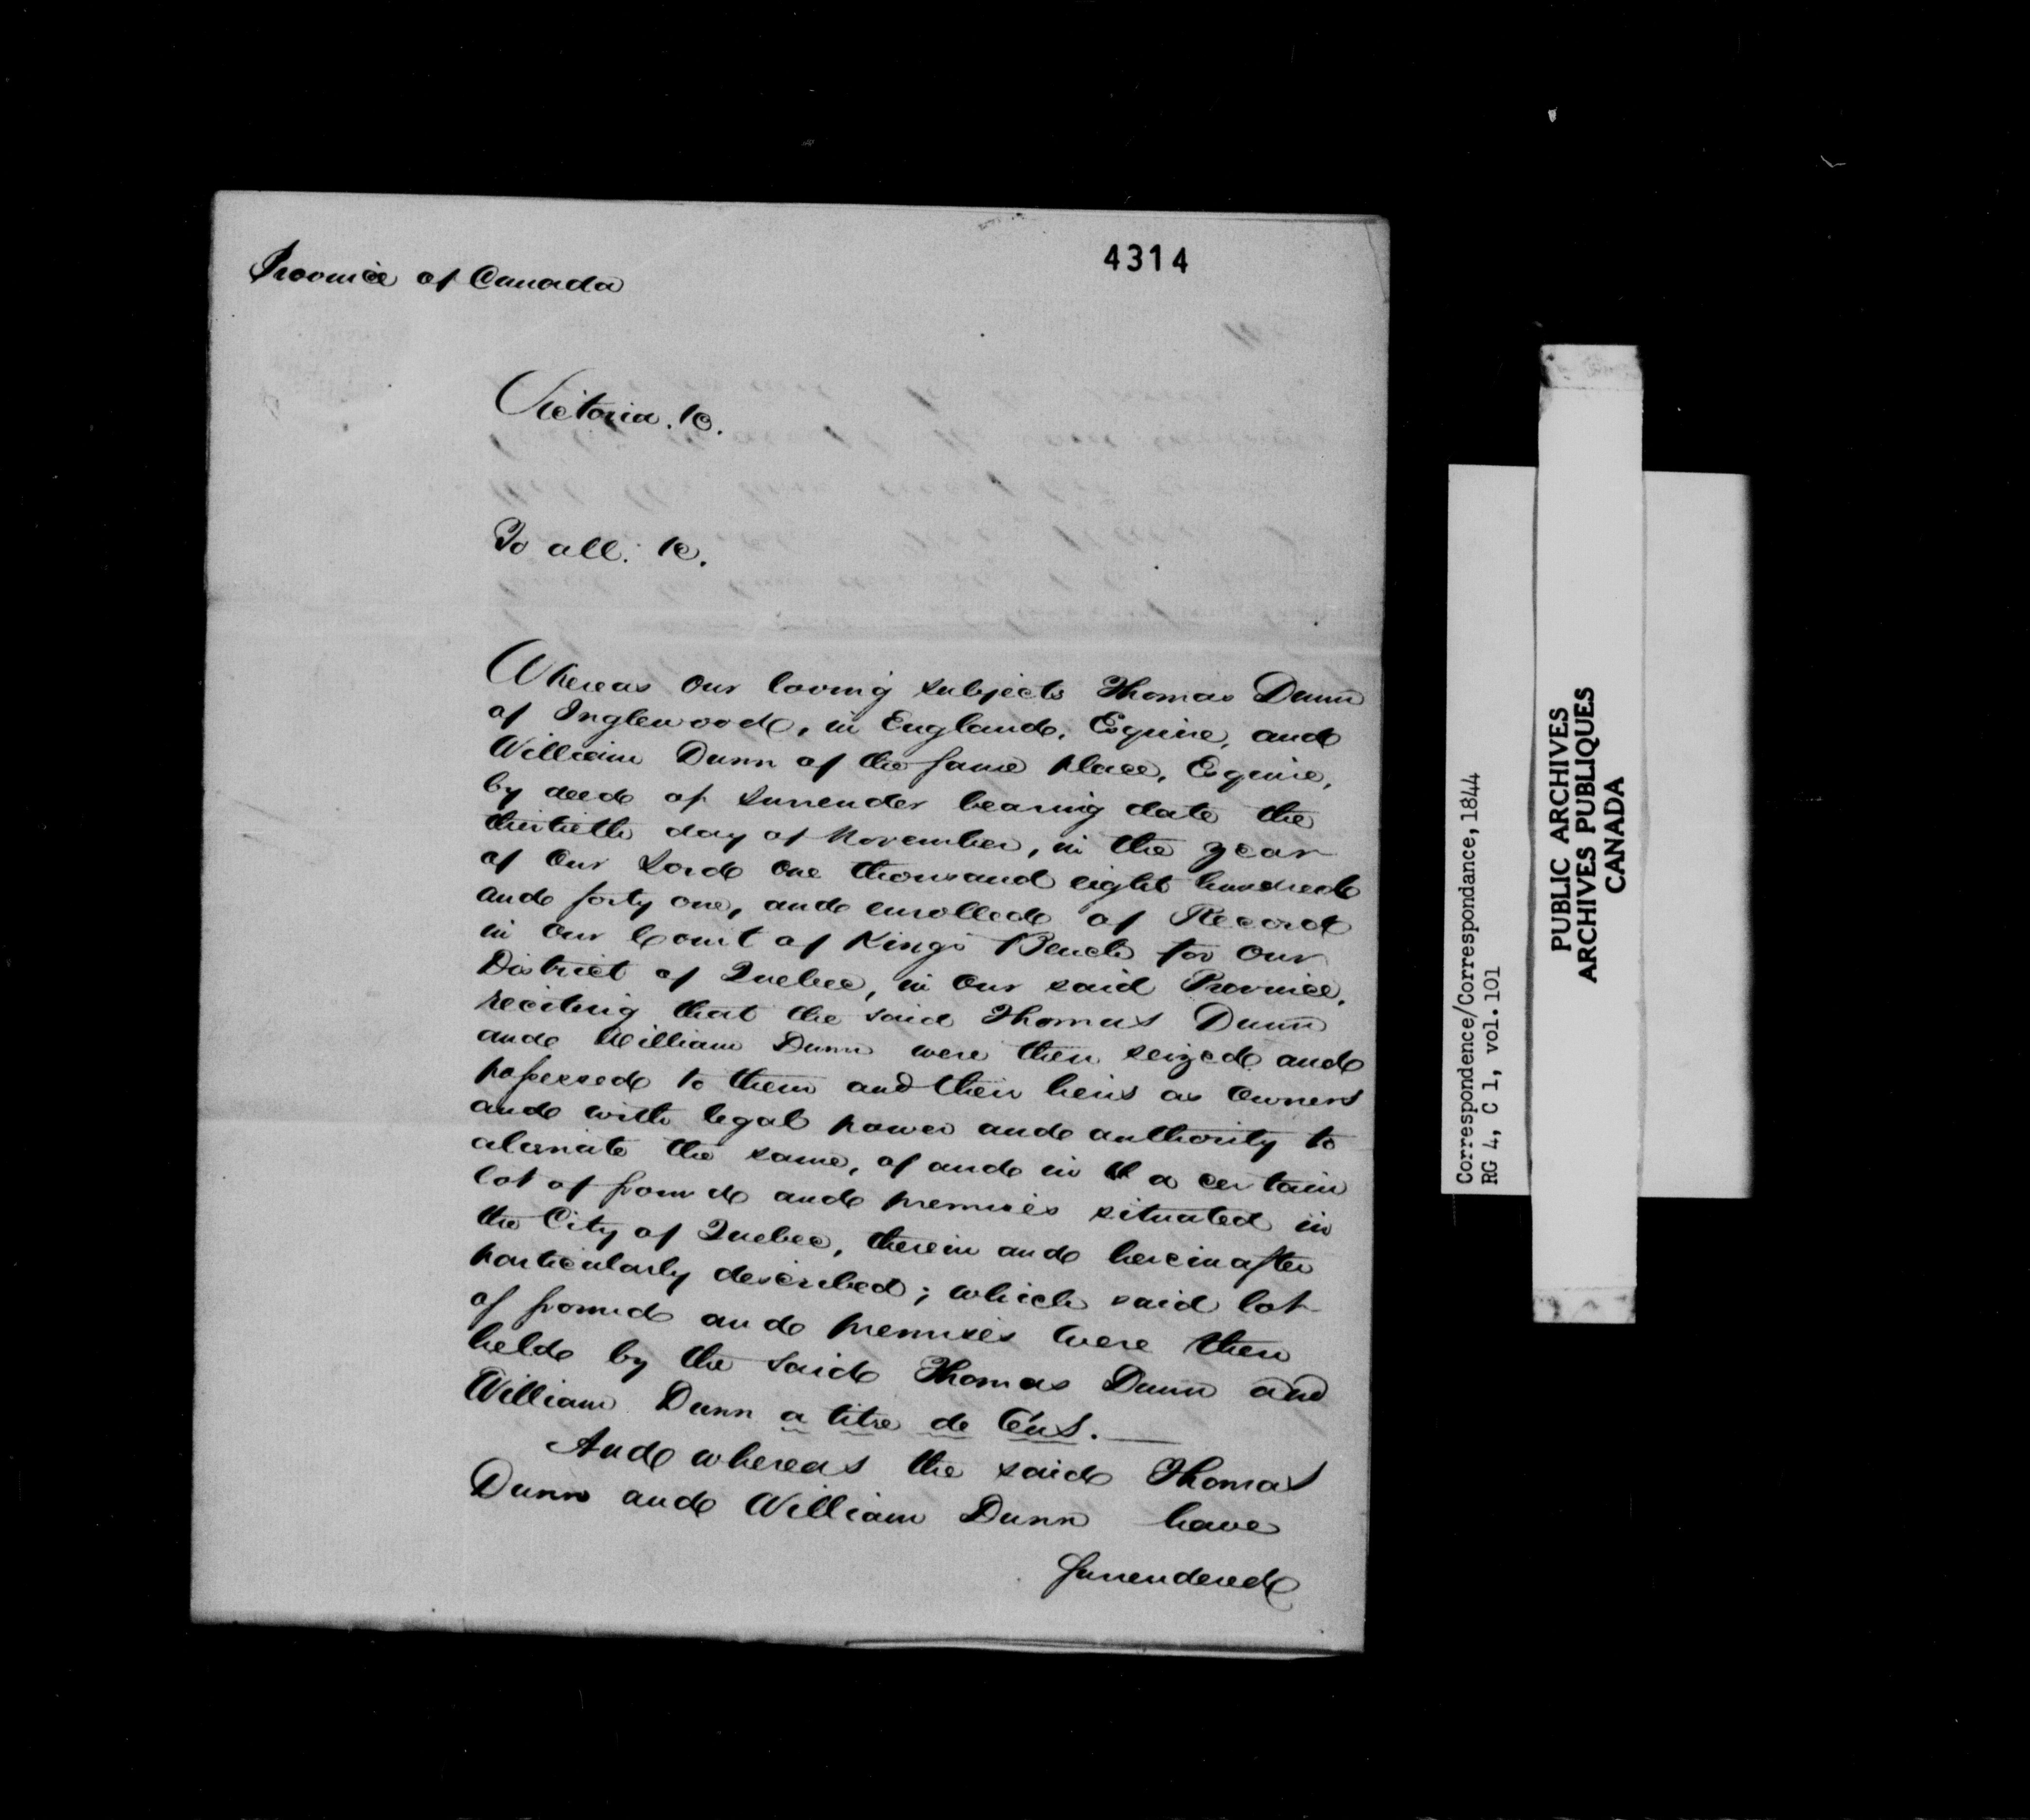 4314
Province of Canada
Victoria. &c.
To all. &c.
Whereas Our loving subjects Thomas Dunn
of Inglewood, in England, Esquire, and
William Dunn of the same place, Esquire,
by deed of surrender bearing date the
thirtieth day of November, in the year
of Our Lord One thousand eight hundred
and forty one, and enrolled of Record
in Our Court of Kings Bench for Our
District of Quebec, in Our said Province,
reciting that the said Thomas Dunn
and William Dunn were then seized and
possessed to them and their heirs as Owners
and with legal power and authority to
alienate the same, of and in a certain
lot of ground and premises situated in
the City of Quebec, therein and hereinafter
particularly described; which said lot
of ground and premises were then
held by the said Thomas Dunn and
William Dunn a titre de Céns.
And whereas the said Thomas
Dunn and William Dunn have
surrendered
Correspondence/Correspondance, 1844
RG 4, C 1, vol. 101
PUBLIC ARCHIVES
ARCHIVES PUBLIQUES
CANADA